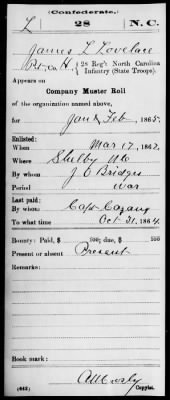 (Confederate.)
L 28 N.C.
James L Lovelace
Pvt, Co. H, 28 Reg't North Carolina
Infantry (State Troops).
Appears on
Company Muster Roll
of the organization named above,
for Jan & Feb, 1865.
Enlisted:
When Mar 17, 1862.
Where Shelby NC
By whom J O Bridges
Period war
Last paid:
By whom Capt
To what time Oct 31, 1864.
Bounty: Paid, $ 100; due, $ 100
Present or absent Present
Remarks:
Book mark:
(642) Copyist.